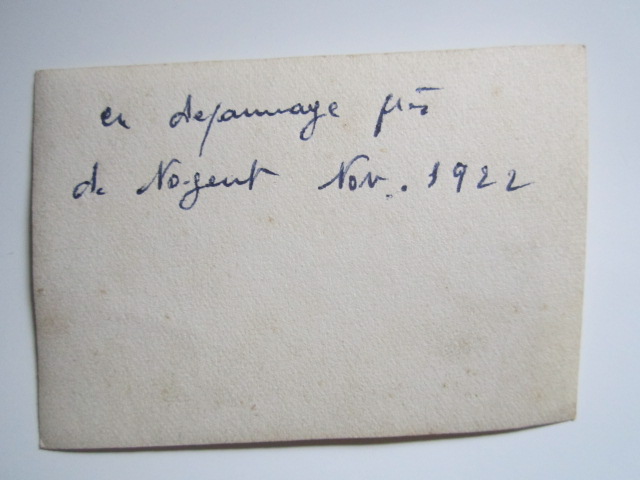 en depannage près
de Nogent Nov. 1922